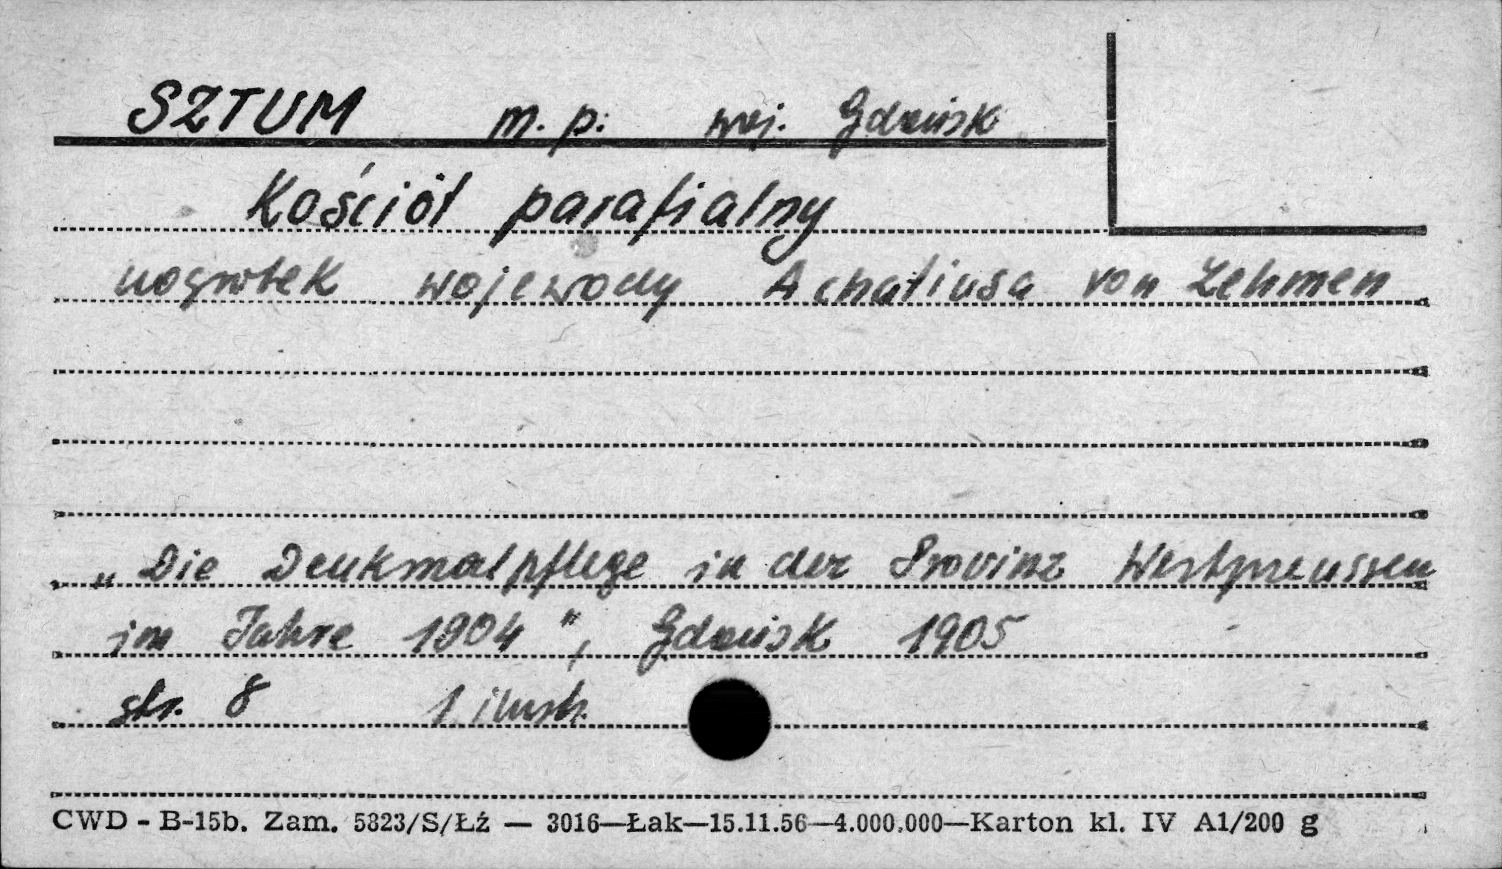 SZTUM m. p. woj. Gdańsk
Kościół parafialny
nagrobek wojewody Achatiusa von Zehmen
„Die Denkmalpflege in der Provinz Westpreussen
im Jahre 1904", Gdańsk 1905
str. 8 1 ilustr.
CWD - B-15b. Zam. 5823/S/Łź — 3016—Łak—15.11.56—4.000.000—Karton kl. IV A1/200 g